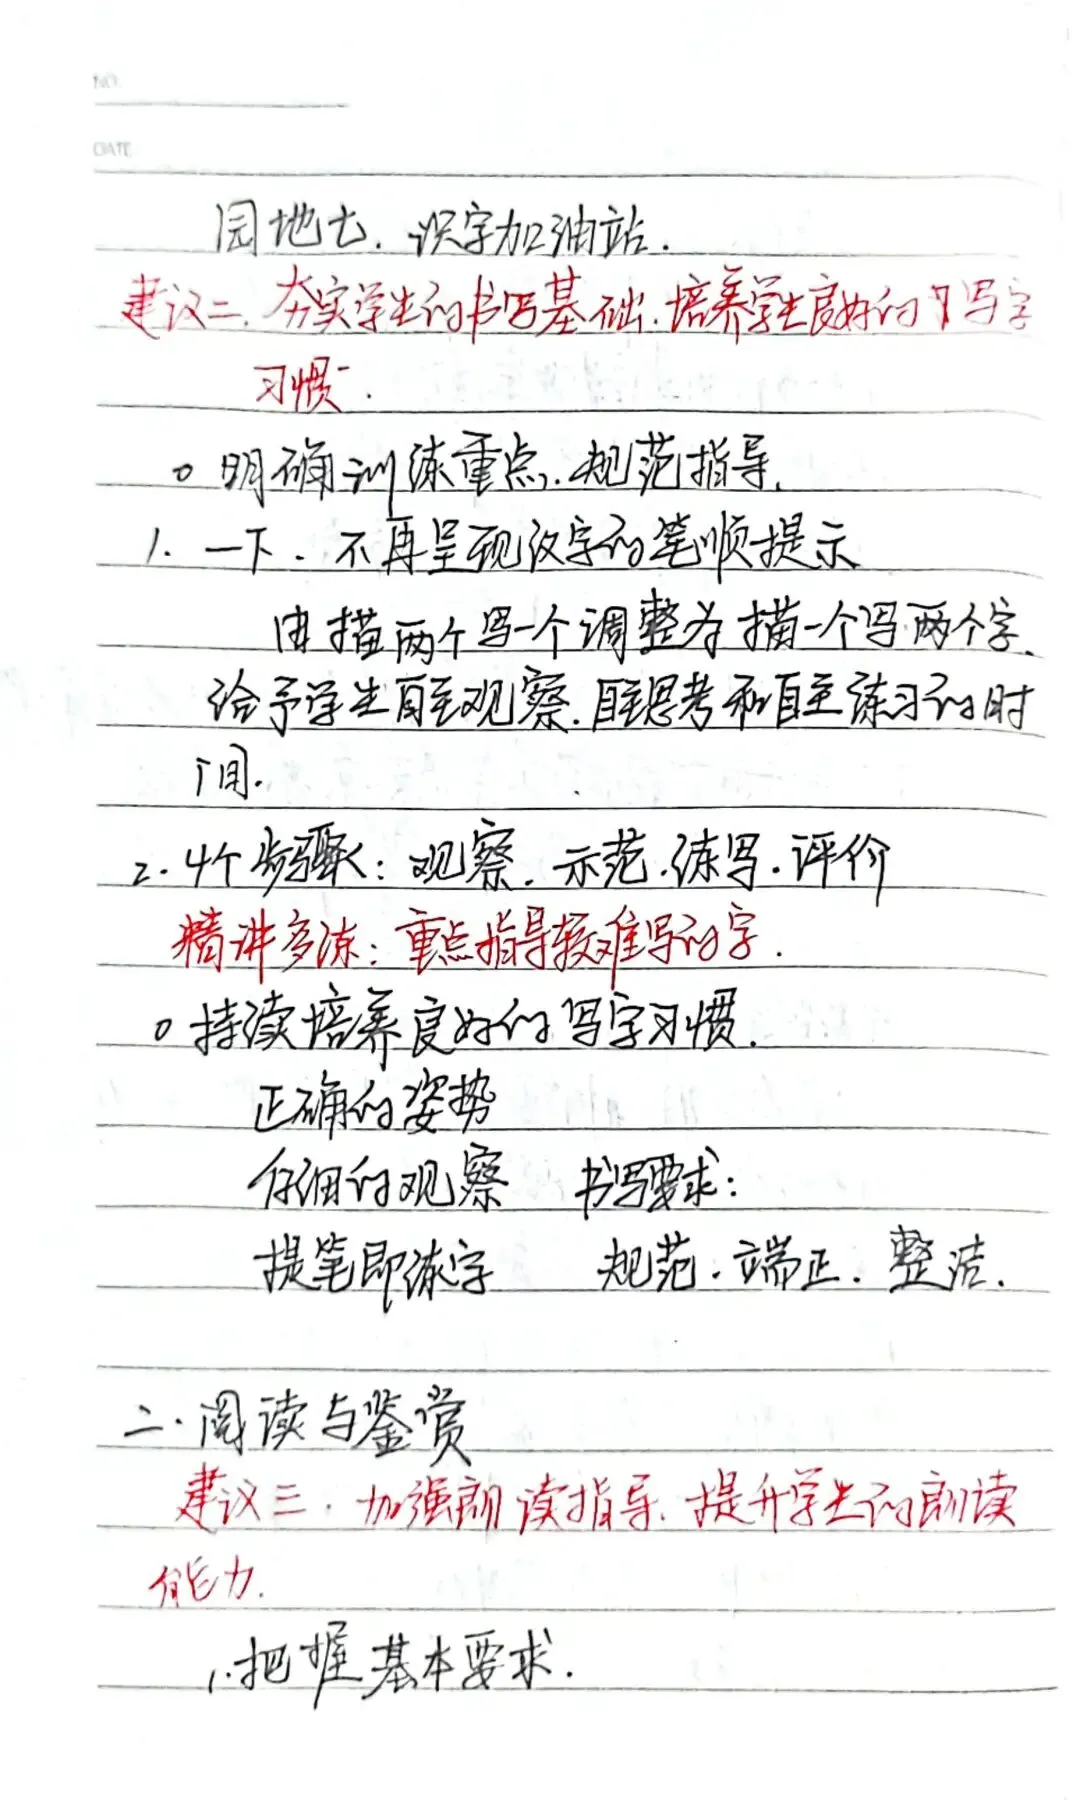 NO.
DATE
园地七.识字加油站.
建议二.夯实学生的书写基础.培养学生良好的写字
习惯.
○明确训练重点.规范指导.
1.一下.不再呈现汉字的笔顺提示
由描两个写一个调整为描一个写两个字.
给予学生自主观察.自主思考和自主练习的时
间.
2.4个步骤:观察.示范.练写.评价
精讲多练:重点指导较难写的字.
○持续培养良好的写字习惯.
正确的姿势
仔细的观察 书写要求:
提笔即练字 规范.端正.整洁.
二.阅读与鉴赏
建议三.加强朗读指导.提升学生的朗读
能力.
1.把握基本要求.